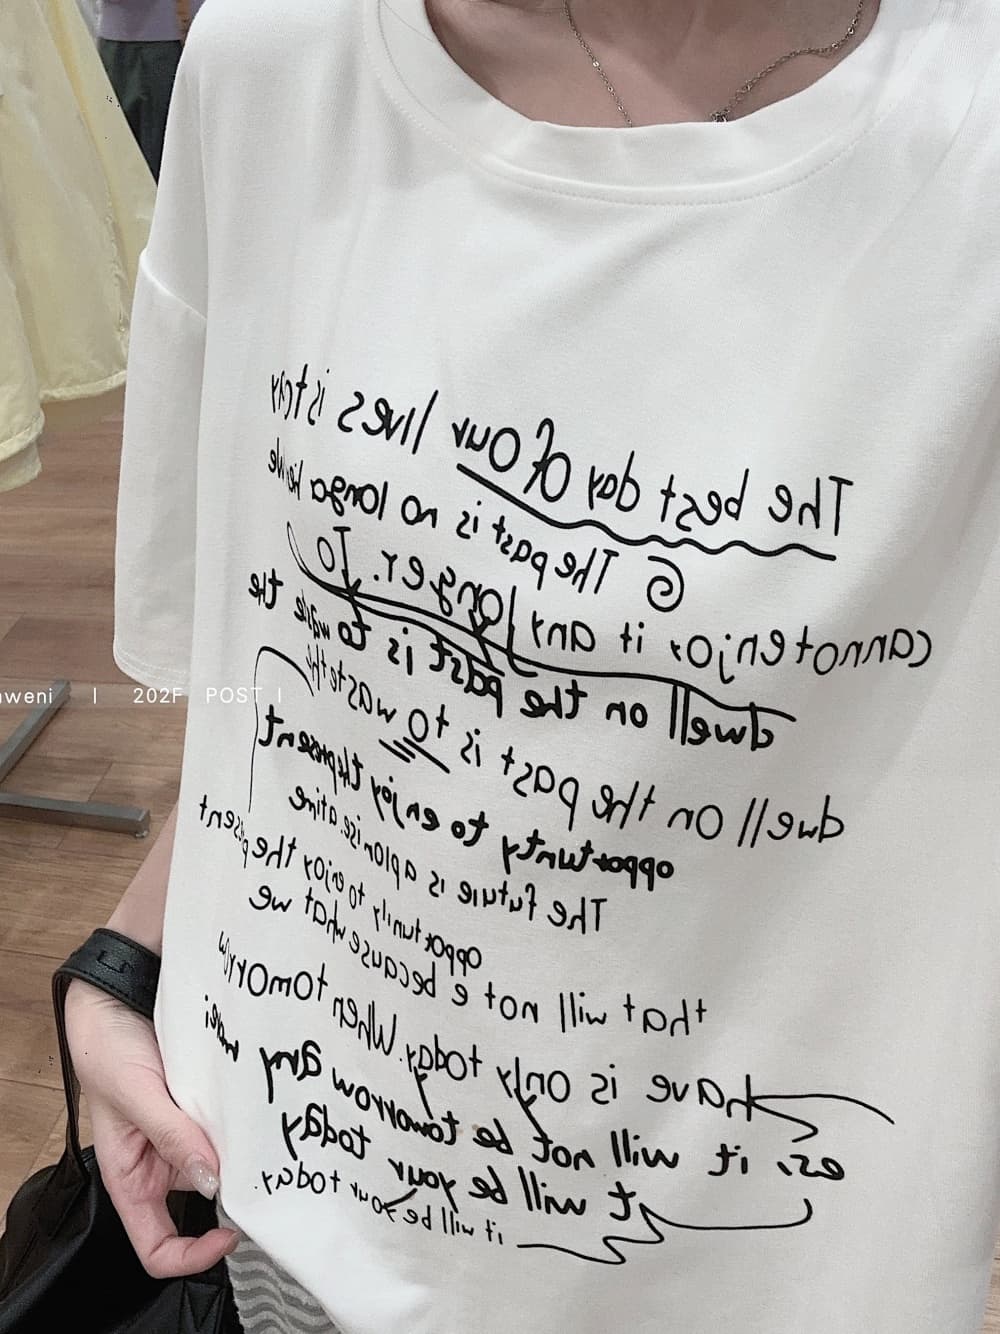 The best day of our lives is
The past is no longer
cannot enjoy it any longer. To
dwell on the past is to waste the
dwell on the past is to waste the
opportunty to enjoy the present
The future is a
opportunity to enjoy the present
that will not e because what we
have is only today. When tomorrow
it will not be tomorrow any
it will be your today
it will be your today.
weni | 202F POST |